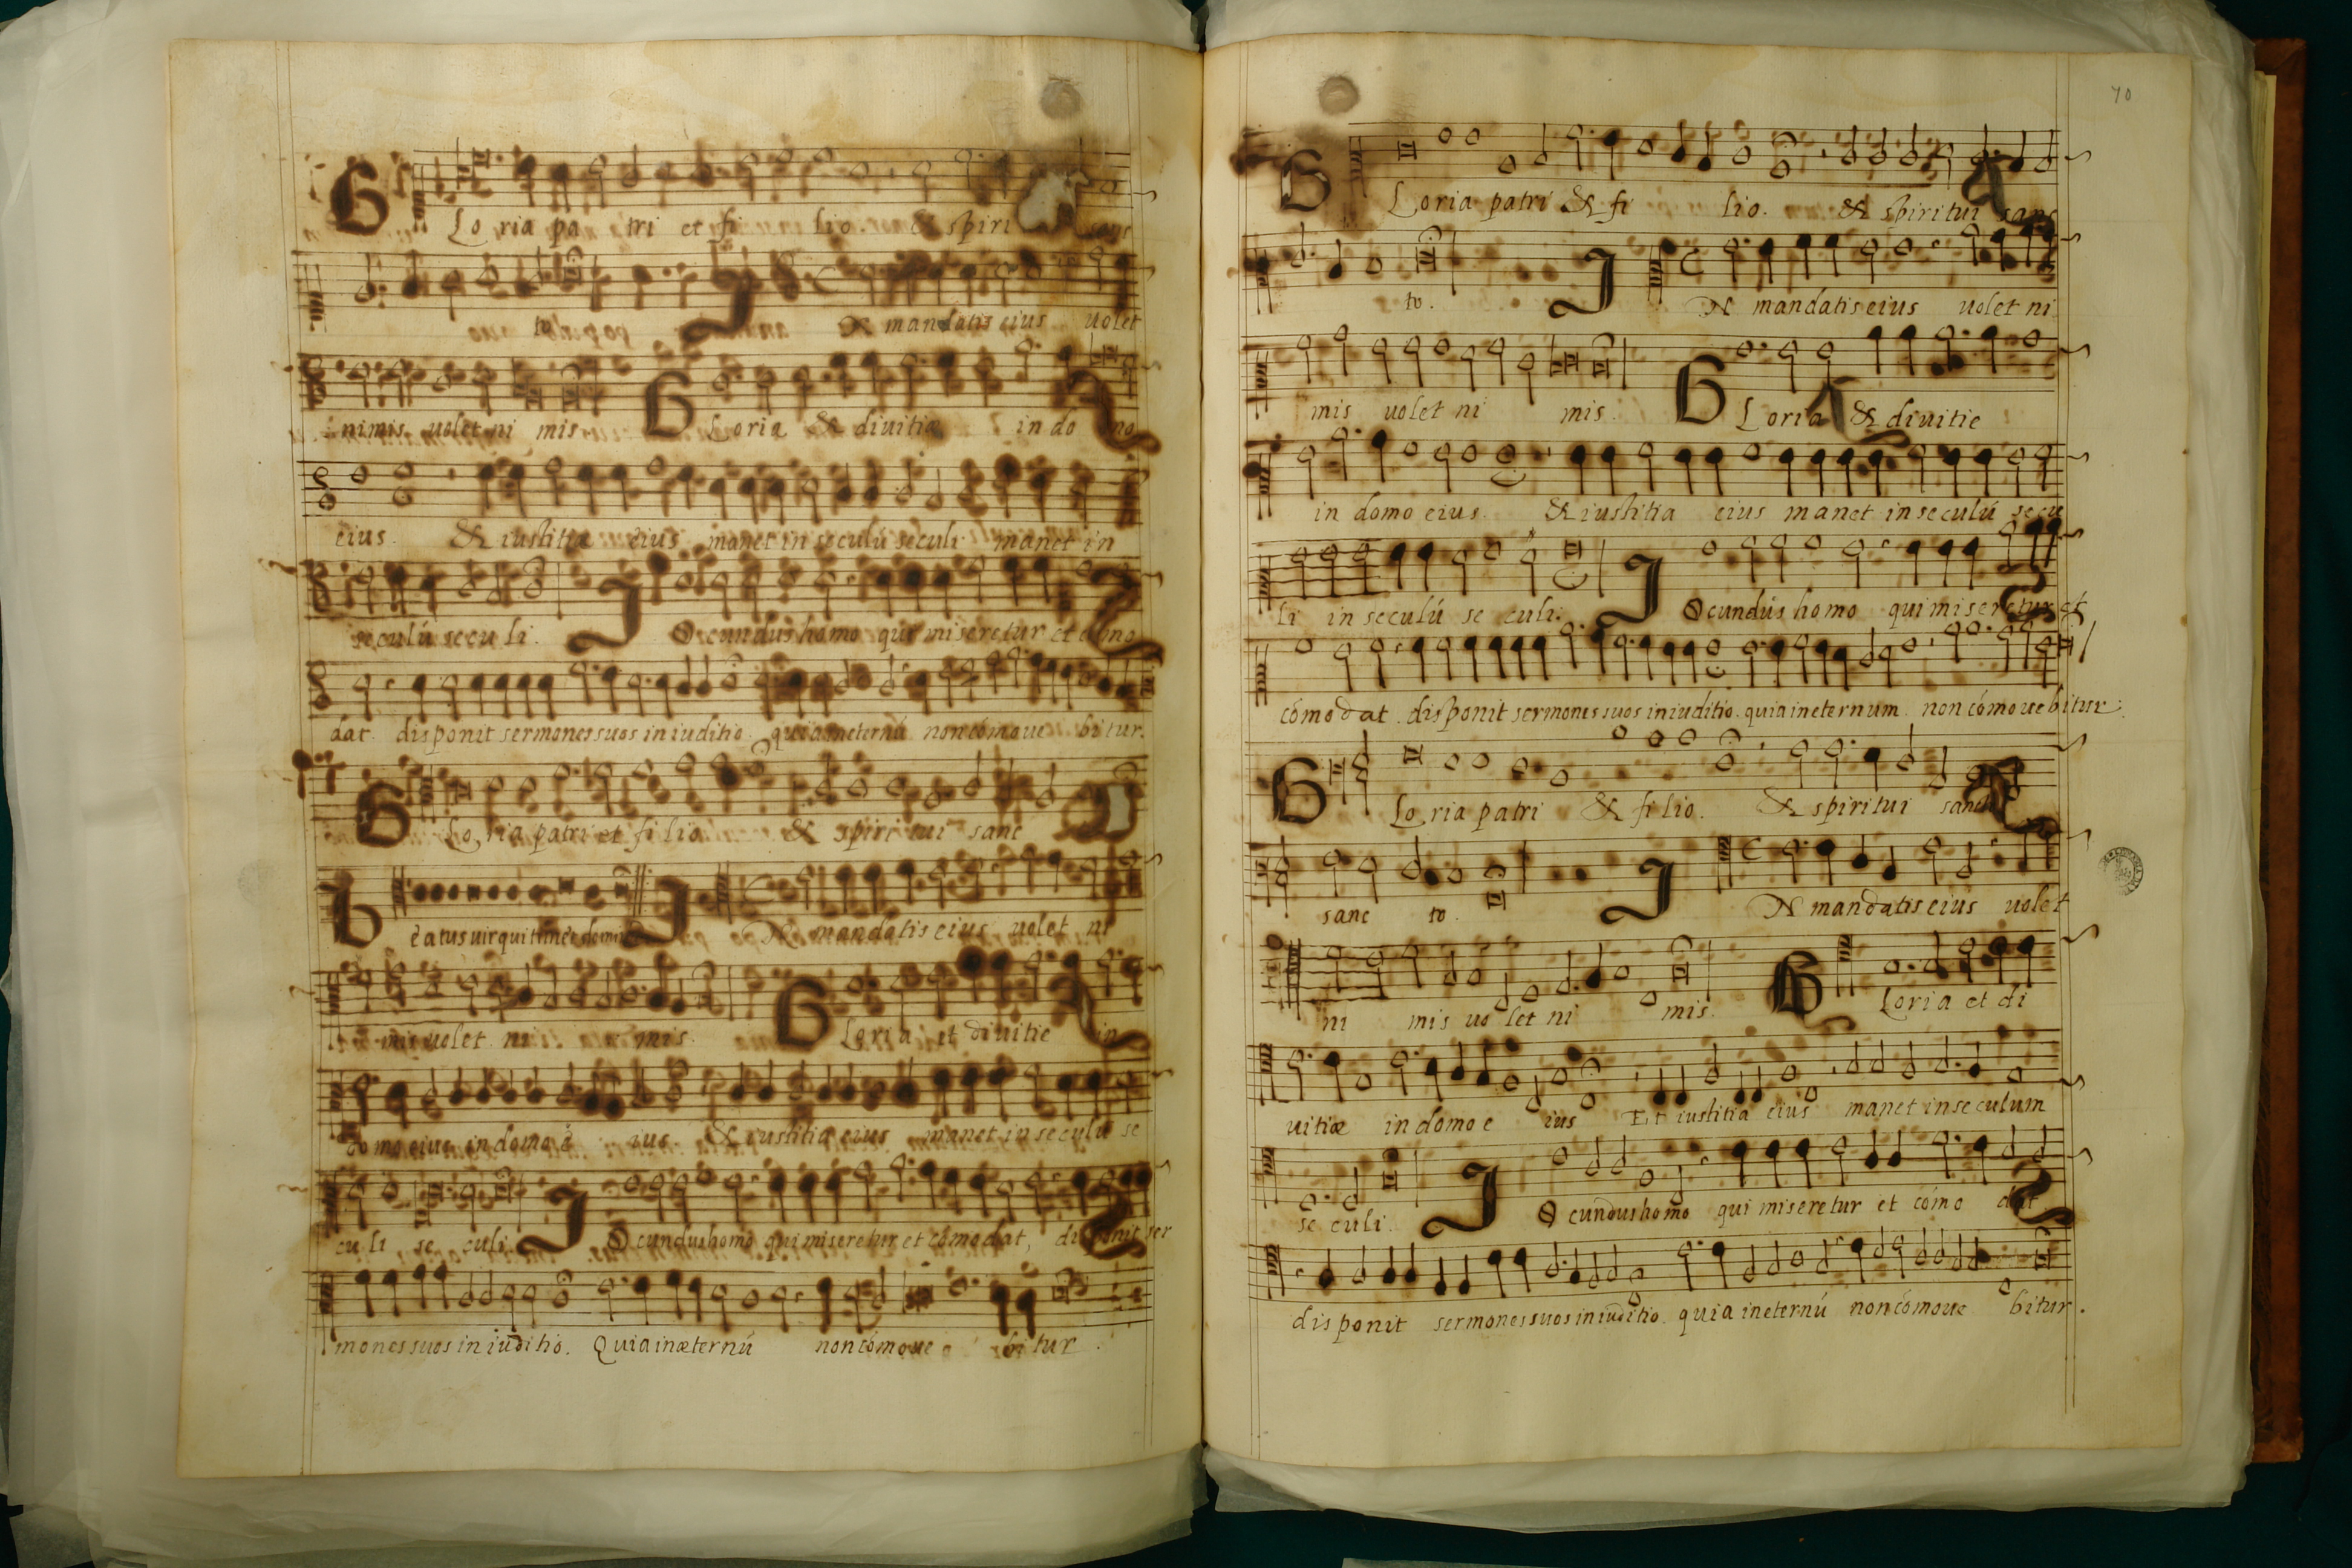 Gloria patri et fi lio & spiri sanc
to IN mandatis eius uolet
nimis uolet ni mis Gloria & diuitiæ in do mo
eius. & iustitia eius manet in seculú seculi manet in
seculú secu li. IOcundus homo qui miseretur et cómo
dat disponit sermones suos in iuditio quia ineternú non cómoue bitur.
Gloria patri et filio & spiri tui sanc
Beatus uir qui timet IN mandatis eius uolet ni
mis uolet ni mis. Gloria et diuitie in
domo eius in domo e ius. & iustitia eius manet in seculú se
cu li se culi. IOcundus homo qui miseretur et cómodat, disponit ser
mones suos in iuditio. Quia inæternú non cómoue bi tur.
70
Gloria patri & fi lio. & spiritui sanc
to. IN mandatis eius uolet ni
mis uolet ni mis. Gloria & diuitie
in domo eius. & iustitia eius manet in seculú secu
li in seculú se culi. IOcundús homo qui miseretur et
cómodat. disponit sermones suos in iuditio. quia ineternum non cómouebitur.
Gloria patri & filio. & spiritui sanc
sanc to. IN mandatis eius uolet
ni mis uo let ni mis. Gloria et di
uitiæ in domo e ius Et iustitia eius manet in seculum
se culi. IOcundus homo qui miseretur et cómo dat
disponit sermones suos in iuditio. quia ineternú non cómoue bitur.